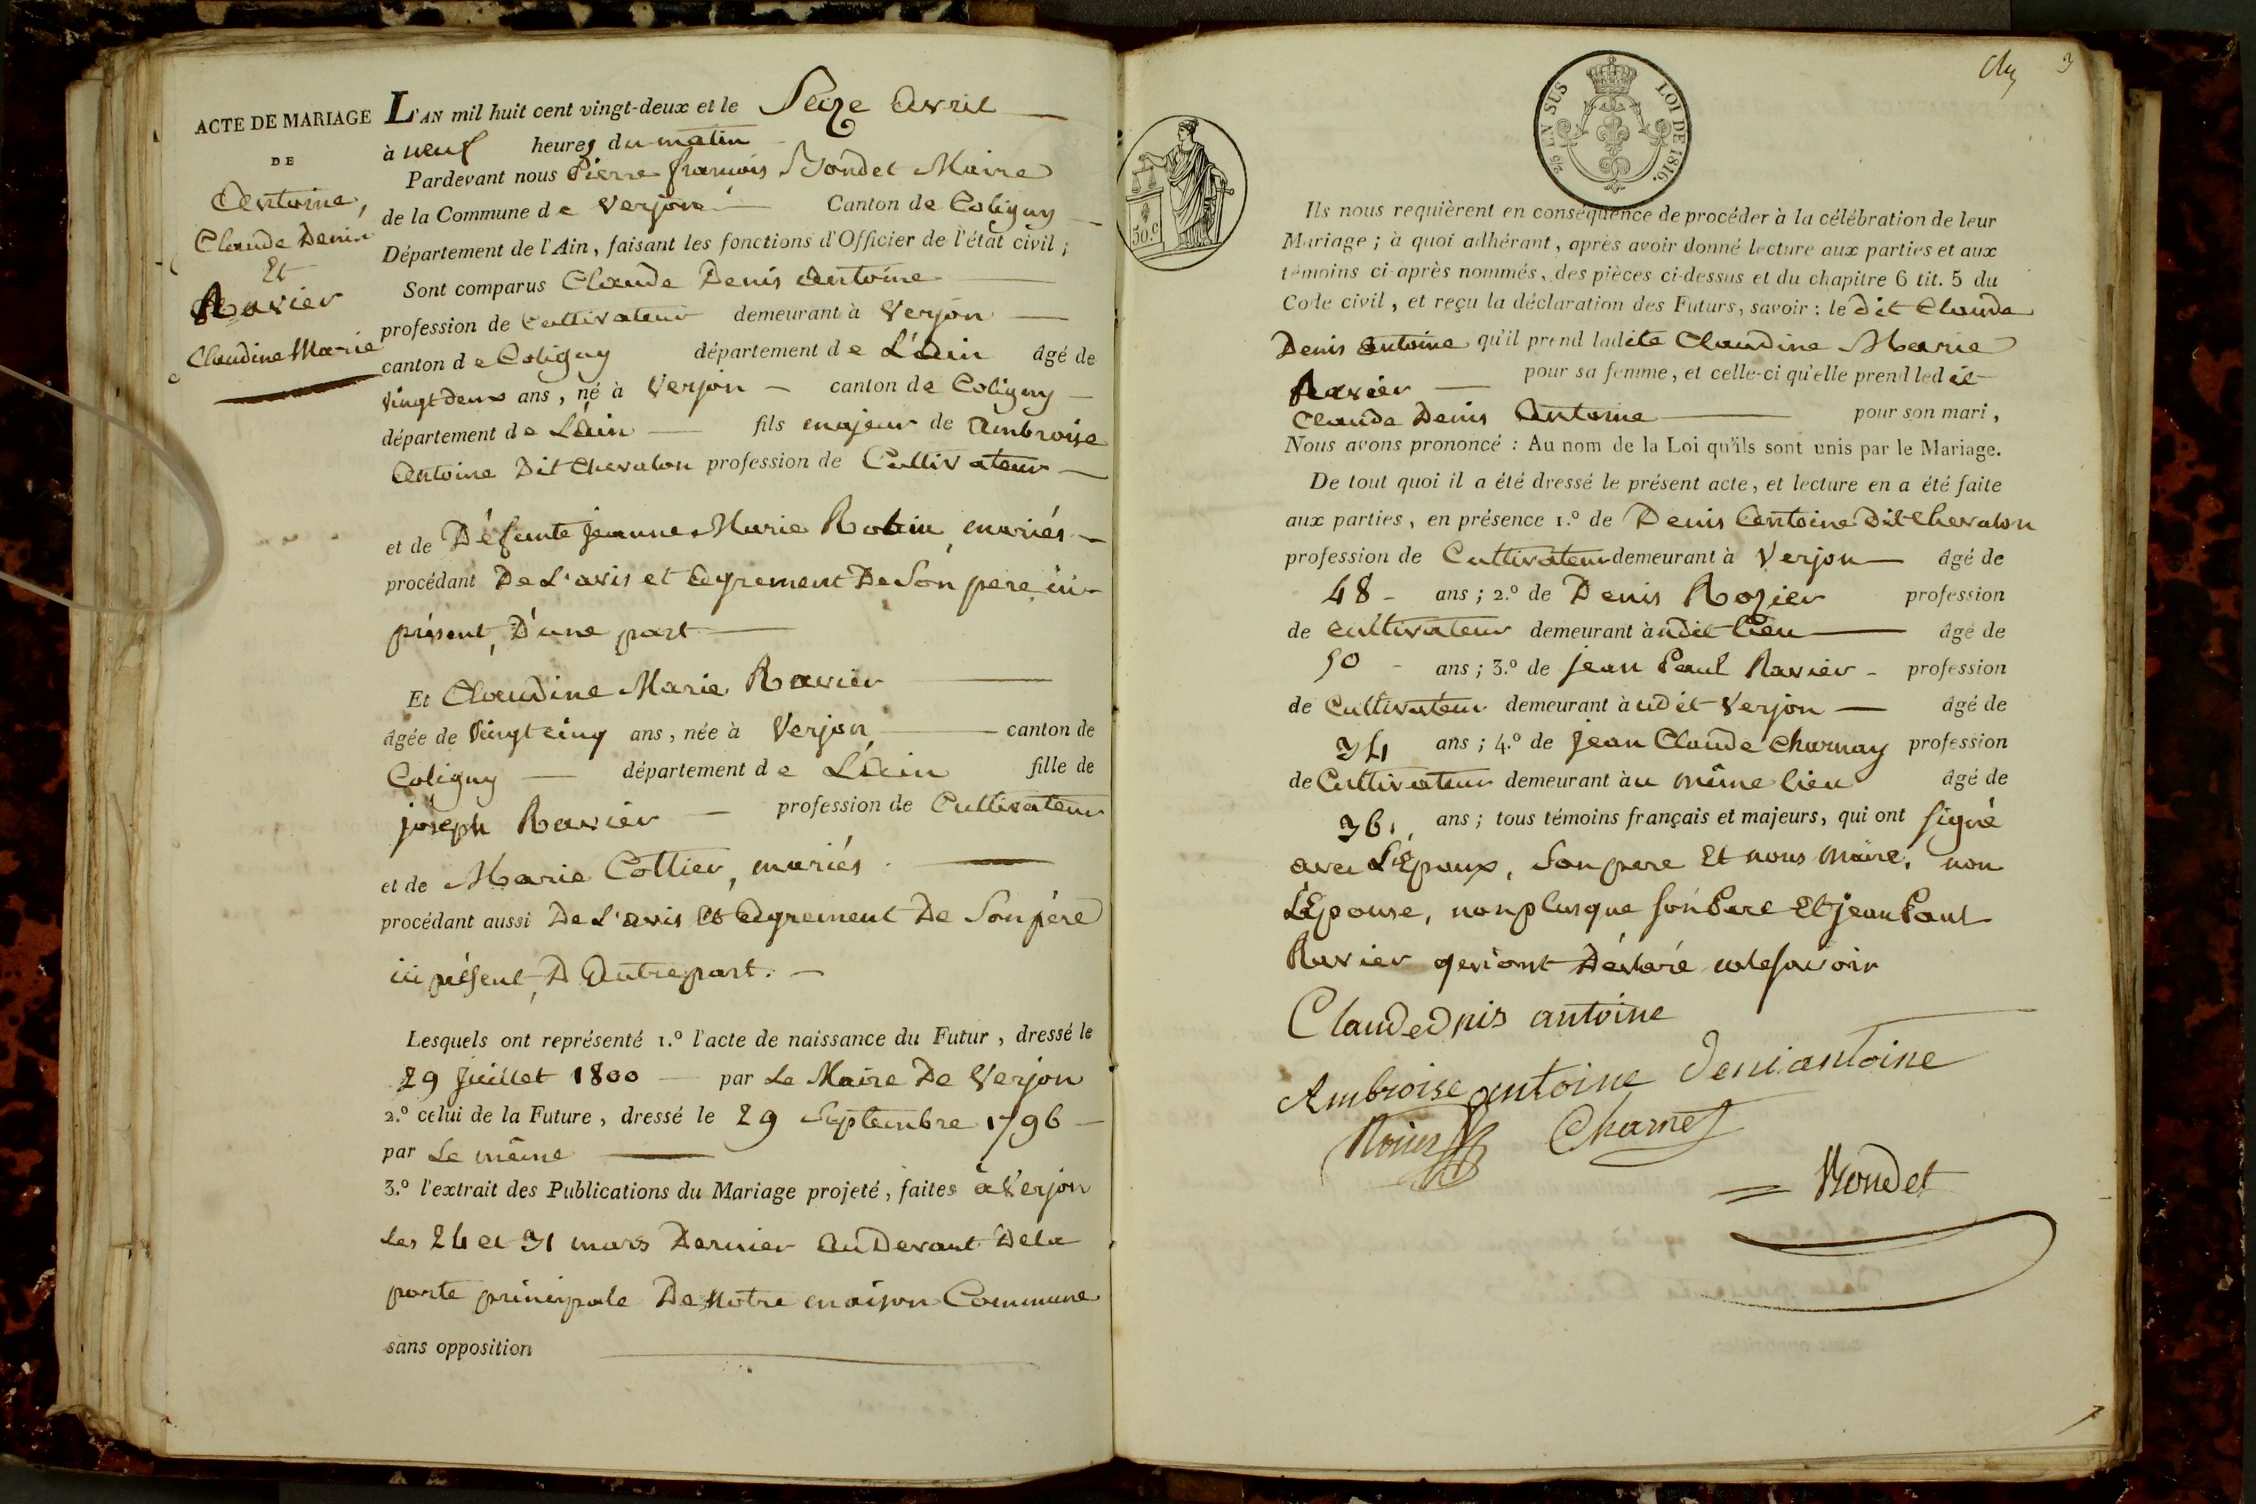 ACTE DE MARIAGE
DE
Antoine,
Claude Denis
Et
Ravier
Claudine Marie
L'AN mil huit cent vingt-deux et le Seize avril
à neuf heures du matin
Pardevant nous Pierre françois Mondet Maire
de la Commune de Verjon Canton de Coligny
Département de l'Ain, faisant les fonctions d'Officier de l'état civil ;
Sont comparus Claude Denis Antoine
profession de Cultivateur demeurant à Verjon
canton de Coligny département de L'Ain âgé de
vingt deux ans, né à Verjon canton de Coligny
département de L'ain fils majeur de Ambroise
Antoine Dit Chevalon profession de Cultivateur
et de Défunte jeanne Marie Robin, mariés
procédant De L'avis et Agrement De Son pere ici
présent, D'une part
Et Claudine Marie Ravier
âgée de Vingt cinq ans, née à Verjon canton de
Coligny département de L'Ain fille de
joseph Ravier profession de Cultivateur
et de Marie Cottier, mariés
procédant aussi De L'avis et Agrement De Son père
ici présent, D'Autre part.
Lesquels ont représenté 1.º l'acte de naissance du Futur, dressé le
29 Juillet 1800 par Le Maire De Verjon
2.º celui de la Future, dressé le 29 Septembre 1796
par Le même
3.º l'extrait des Publications du Mariage projeté, faites à Verjon
Les 24 et 31 mars Dernier au Devant De la
porte principale De Notre maison Commune
sans opposition
3
EN SUS LOI DE 1816.
30.c
Ils nous requièrent en conséquence de procéder à la célébration de leur
Mariage ; à quoi adhérant, après avoir donné lecture aux parties et aux
témoins ci-après nommés, des pièces ci-dessus et du chapitre 6 tit. 5 du
Code civil, et reçu la déclaration des Futurs, savoir : le dit Claude
Denis Antoine qu'il prend ladite Claudine Marie
Ravier pour sa femme, et celle-ci qu'elle prend ledit
Claude Denis Antoine pour son mari,
Nous avons prononcé : Au nom de la Loi qu'ils sont unis par le Mariage.
De tout quoi il a été dressé le présent acte, et lecture en a été faite
aux parties, en présence 1.º de Denis Antoine Dit Chevalon
profession de Cultivateur demeurant à Verjon âgé de
48 ans ; 2.º de Denis Rozier profession
de cultivateur demeurant àudit lieu âgé de
50 ans ; 3.º de jean Paul Ravier profession
de Cultivateur demeurant àudit Verjon âgé de
34 ans ; 4.º de jean Claude Charnay profession
de Cultivateur demeurant àu même lieu âgé de
36 ans ; tous témoins français et majeurs, qui ont signé
avec L'Epoux, Son pere Et nous Maire, non
L'Epouse, non plus que son Pere Et jean Paul
Ravier qui ont Déclaré ne le savoir
Claude dnis antoine
Ambroise antoine deni antoine
Charney
Mondet